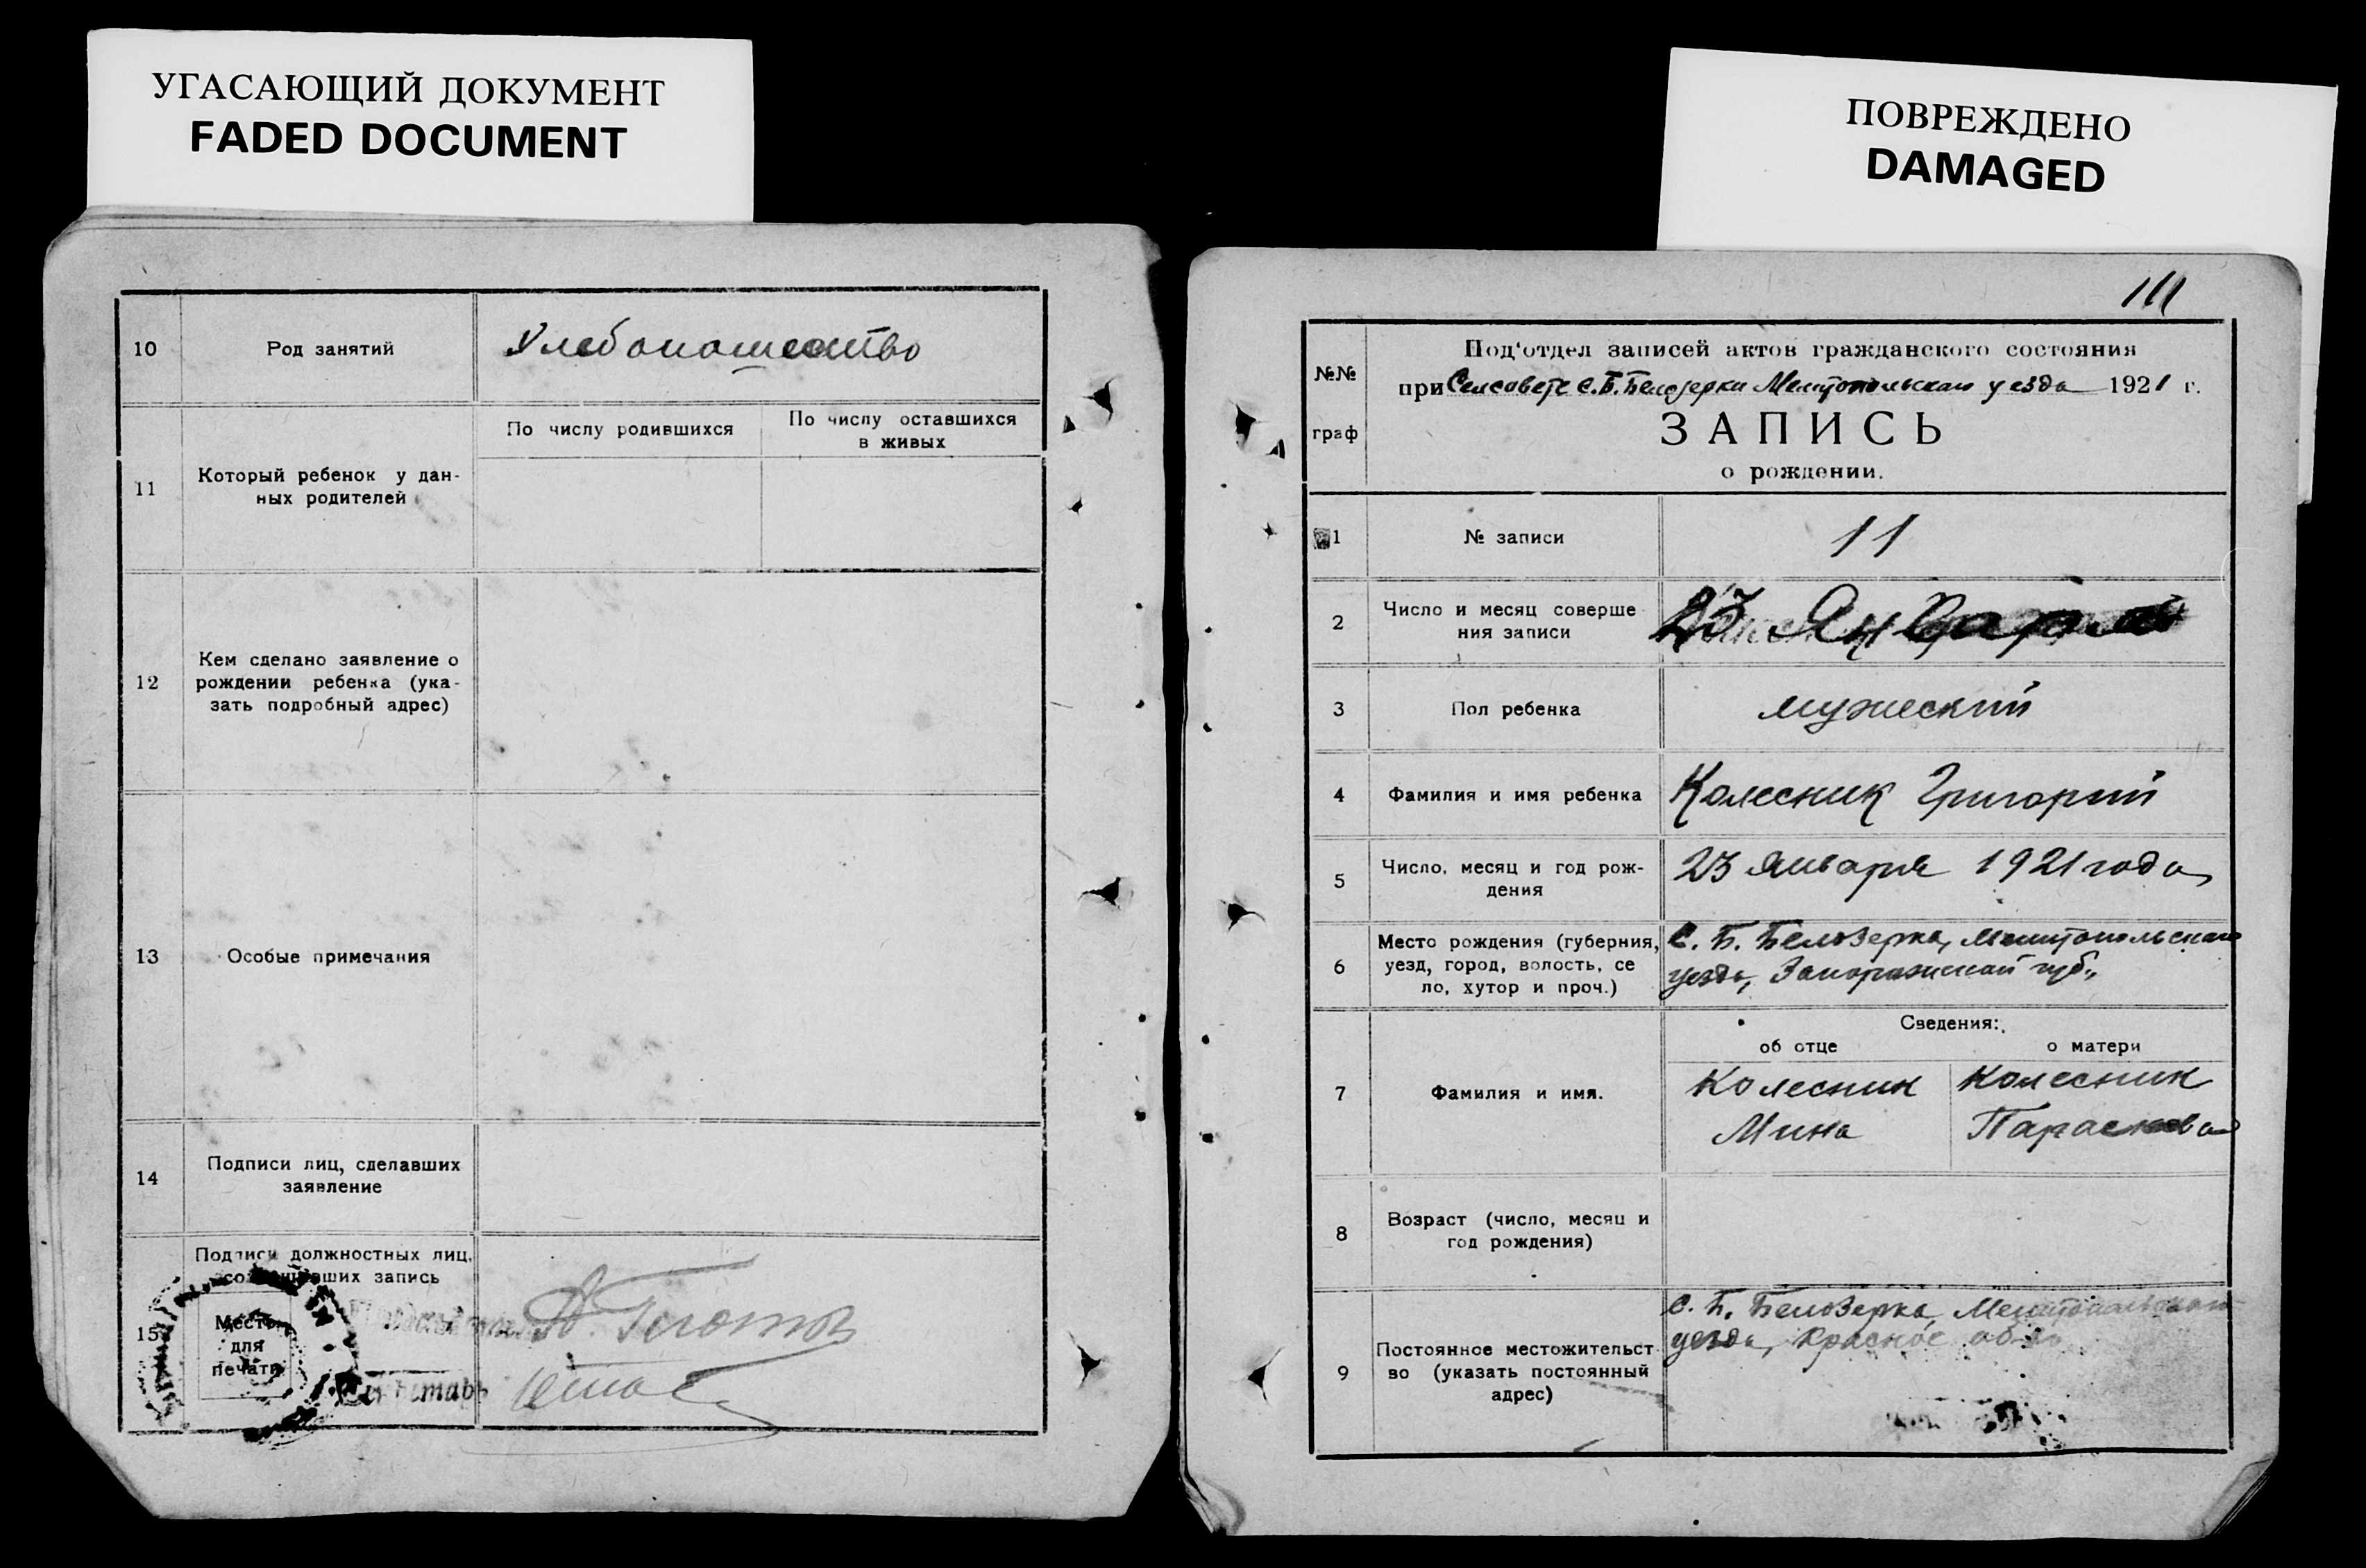 УГАСАЮЩИЙ ДОКУМЕНТ
FADED DOCUMENT
10
Род занятий
Хлебопашество
11
Который ребенок у дан-
ных родителей
По числу родившихся
По числу оставшихся
в живых
12
Кем сделано заявление о
рождении ребенка (ука-
зать подробный адрес)
13
Особые примечания
14
Подписи лиц, сделавших
заявление
15
Подписи должностных лиц,
запись
Место
для
печати
ПОВРЕЖДЕНО
DAMAGED
111
№№
граф
Под'отдел записей актов гражданского состояния
при Сельсовете С. Б. Белозерки Мелитопольскаго уезда 1921 г.
ЗАПИСЬ
о рождении.
1
№ записи
11
2
Число и месяц соверше
ния записи
23 Января
3
Пол ребенка
мужеский
4
Фамилия и имя ребенка
Колесник Григорий
5
Число, месяц и год рож-
дения
23 Января 1921 года
6
Место рождения (губерния,
уезд, город, волость, се
ло, хутор и проч.)
С. Б. Белозерка, Мелитопольскаго
уезда, Запорожской губ.,
Сведения:
об отце
о матери
7
Фамилия и имя.
Колесник
Мина
Колесник
Параскева
8
Возраст (число, месяц и
год рождения)
9
Постоянное местожительст
во (указать постоянный
адрес)
С. Б. Белозерка, Мелитопольскаго
уезда, Красное